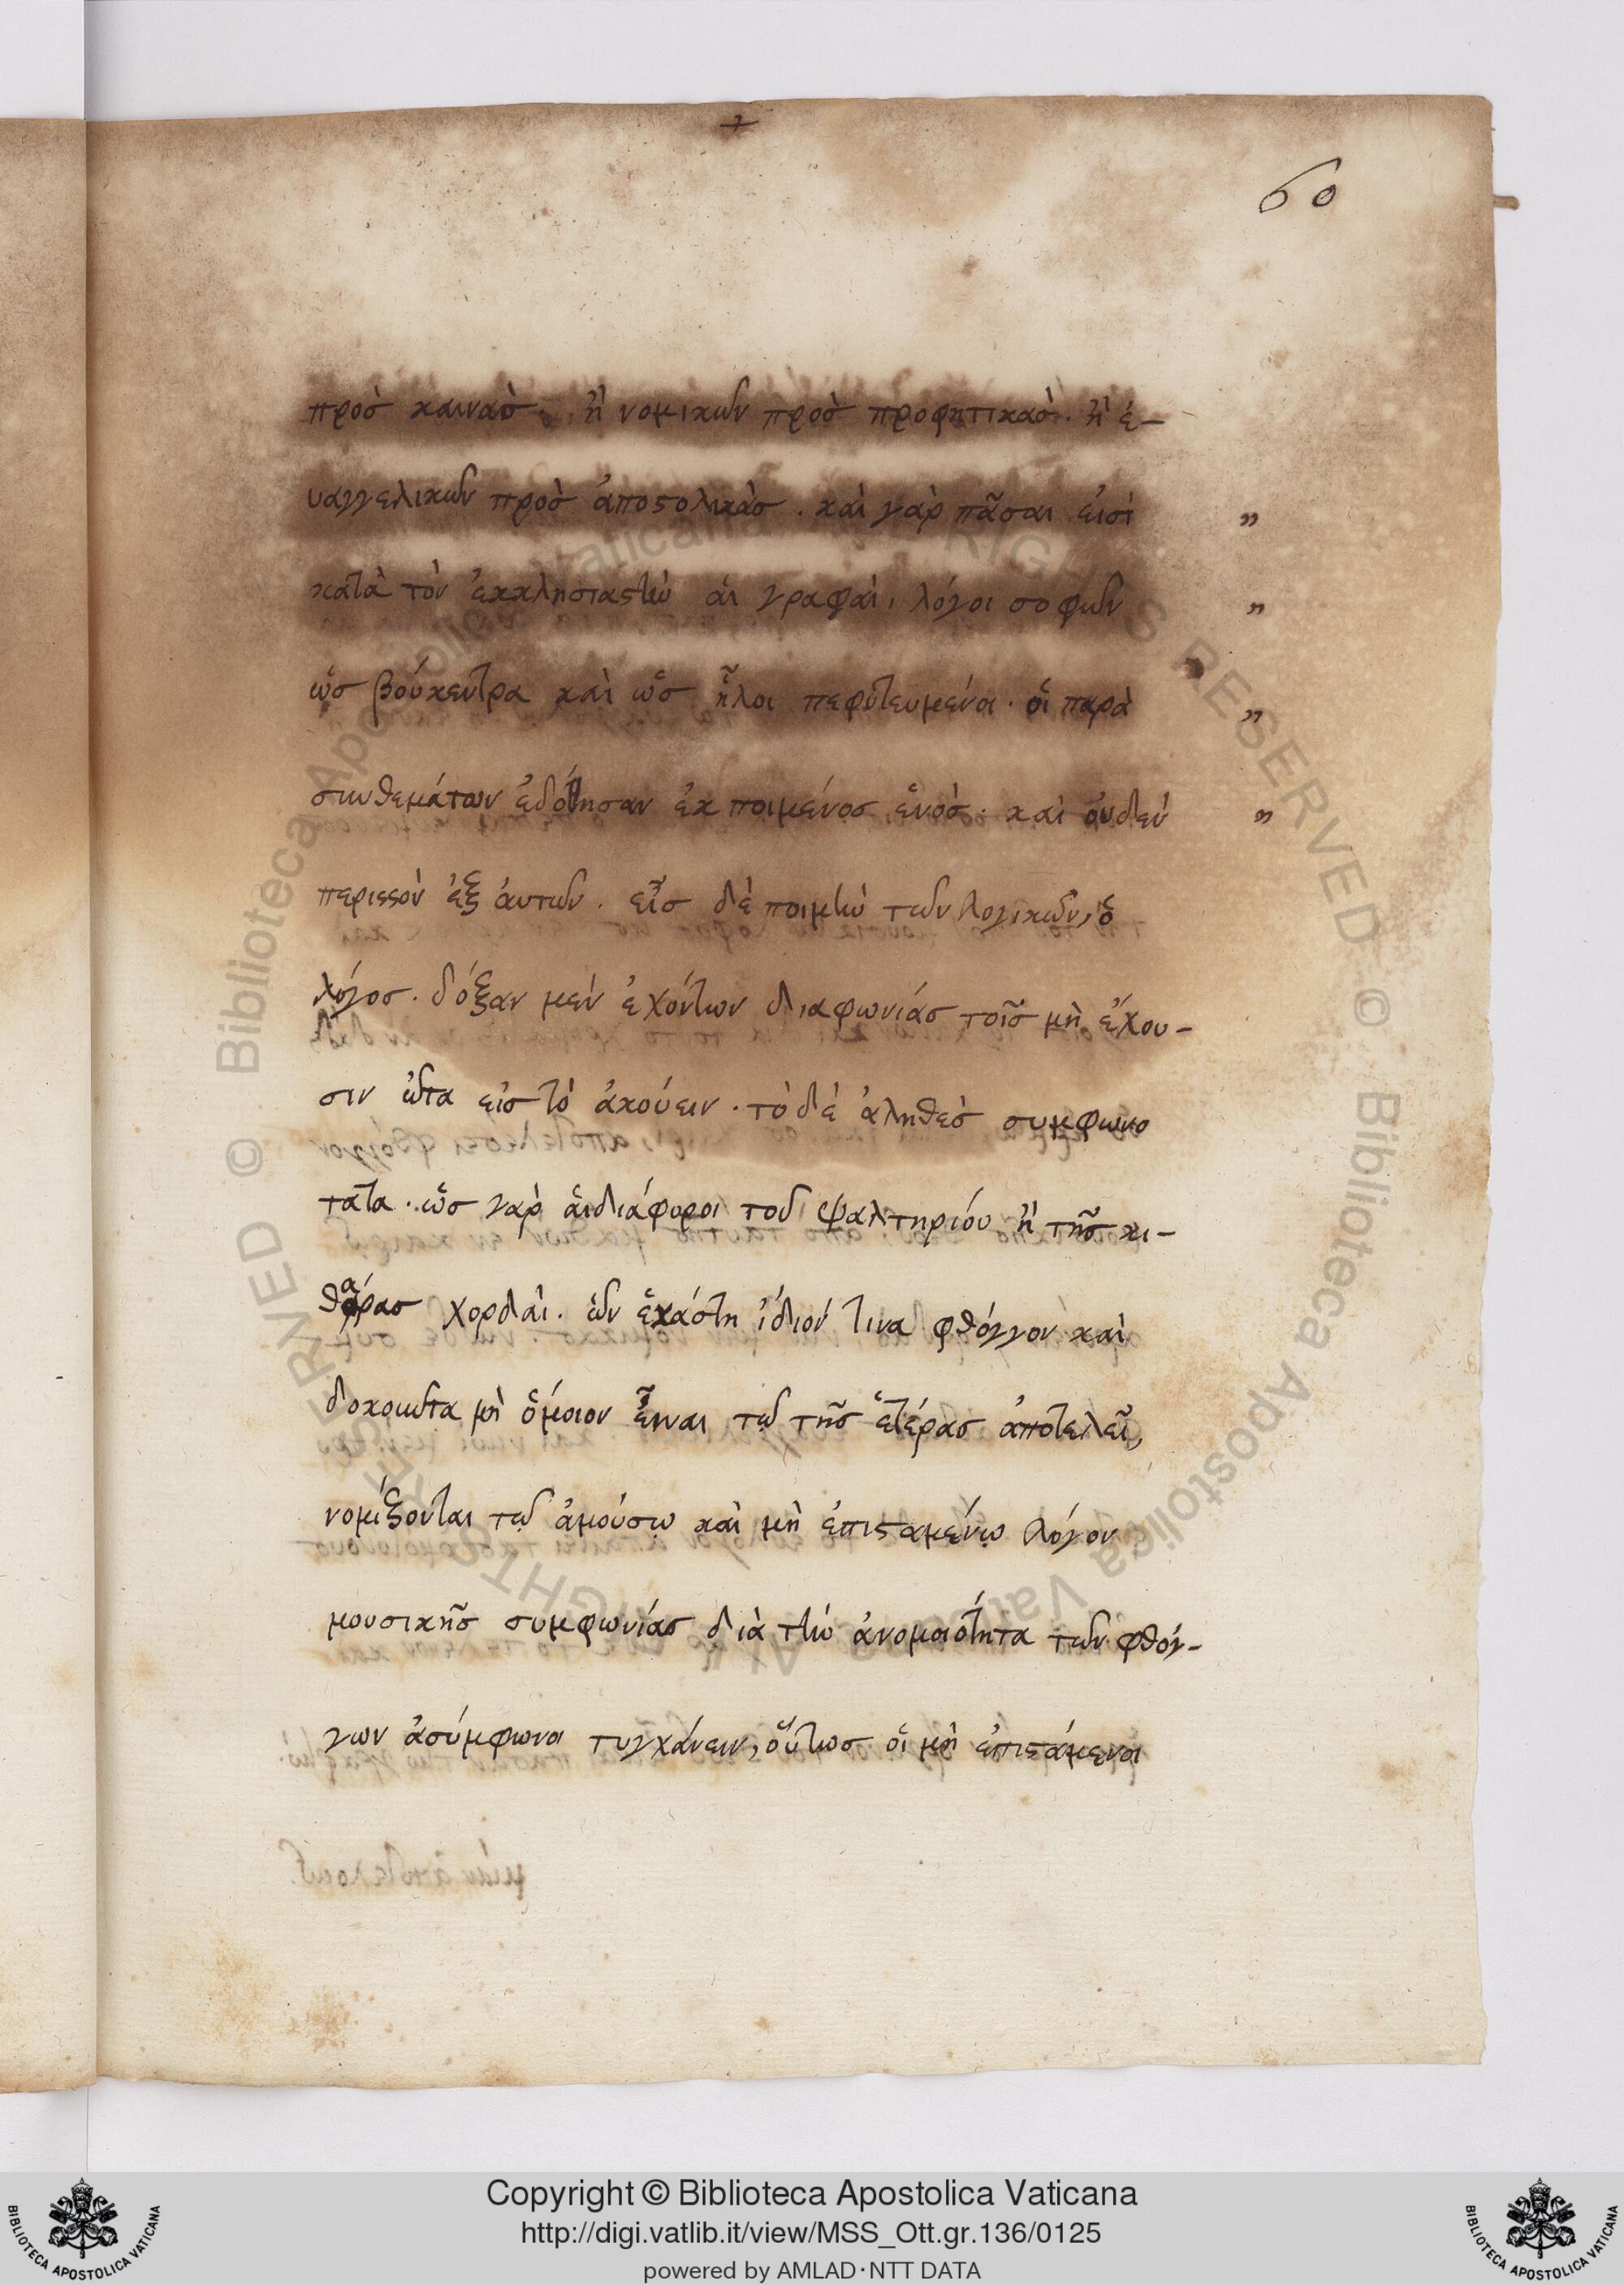 60
πρὸσ καινὰσ. ἢ νομικῶν πρὸσ προφητικὰσ. ἢ ἐ-
υαγγελικῶν πρὸσ ἀποστολικὰσ. καὶ γὰρ πᾶσαι εἰσὶ
κατὰ τὸν ἐκκλησιαστὴν αἱ γραφαὶ, λόγοι σοφῶν
ὡσ βούκεντρα καὶ ὡσ ἧλοι πεφυτευμένοι. οἳ παρὰ
συνθεμάτων ἐδόθησαν ἐκ ποιμένοσ ἑνὸσ. καὶ οὐδὲν
περισσὸν ἐξ ἀυτῶν. εἷσ δὲ ποιμὴν τῶν λογικῶν, ὁ
λόγοσ. δόξαν μὲν ἐχόντων διαφωνίασ τοῖσ μὴ ἔχου-
σιν ὦτα εἰσ τὸ ἀκούειν. τὸ δὲ ἀληθὲσ συμφωνο
τατα. ὡσ γὰρ ἁι διάφοροι τοῦ ψαλτηρίου ἢ τῆσ κι-
θάρασ χορδαὶ. ὧν ἑκάστη ἴδιόν τινα φθόγγον καὶ
δοκοῦντα μὴ ὅμοιον εἶναι τῷ τῆσ ἑτέρασ ἀποτελεῖ,
νομίζονται τῷ ἀμούσῳ καὶ μὴ ἐπισταμένῳ λόγον
μουσικῆσ συμφωνίασ διὰ τὴν ἀνομοιότητα τῶν φθόγ-
γων ἀσύμφωνοι τυγχάνειν, οὕτωσ οἱ μὴ ἐπιστάμενοι
© Biblioteca Apostolica Vaticana RIGHTS RESERVED
Copyright © Biblioteca Apostolica Vaticana
http://digi.vatlib.it/view/MSS_Ott.gr.136/0125
powered by AMLAD·NTT DATA
BIBLIOTECA APOSTOLICA VATICANA
BIBLIOTECA APOSTOLICA VATICANA